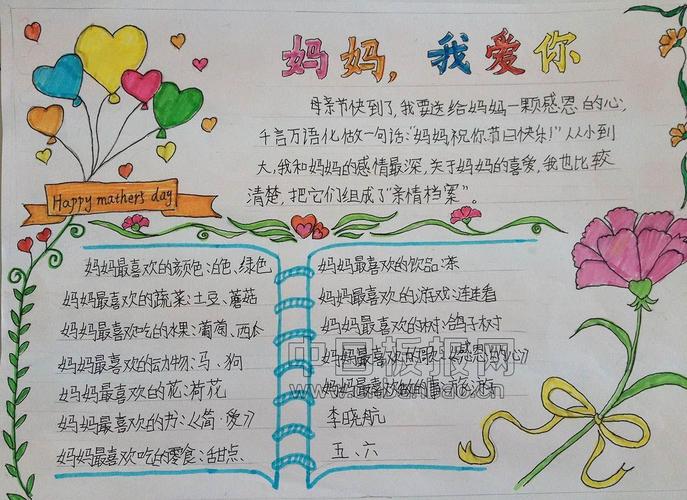 妈妈,我爱你
母亲节快到了,我要送给妈妈一颗感恩的心,
千言万语化做一句话:"妈妈祝你节日快乐!"从小到
大,我和妈妈的感情最深,关于妈妈的喜爱,我也比较
清楚,把它们组成了"亲情档案"。
Happy mathers day
妈妈最喜欢的颜色:白色、绿色
妈妈最喜欢的蔬菜:土豆、蘑菇
妈妈最喜欢吃的水果:葡萄、西瓜
妈妈最喜欢的动物:马、狗
妈妈最喜欢的花:荷花
妈妈最喜欢的书:《简·爱》
妈妈最喜欢吃的零食:甜点、
妈妈最喜欢的饮品:茶
妈妈最喜欢的游戏:连连看
妈妈最喜欢的树:鸽子树
妈妈最喜欢的歌:《感恩的心》
妈妈最喜欢做的事:旅游
李晓航
五、六
中国板报网